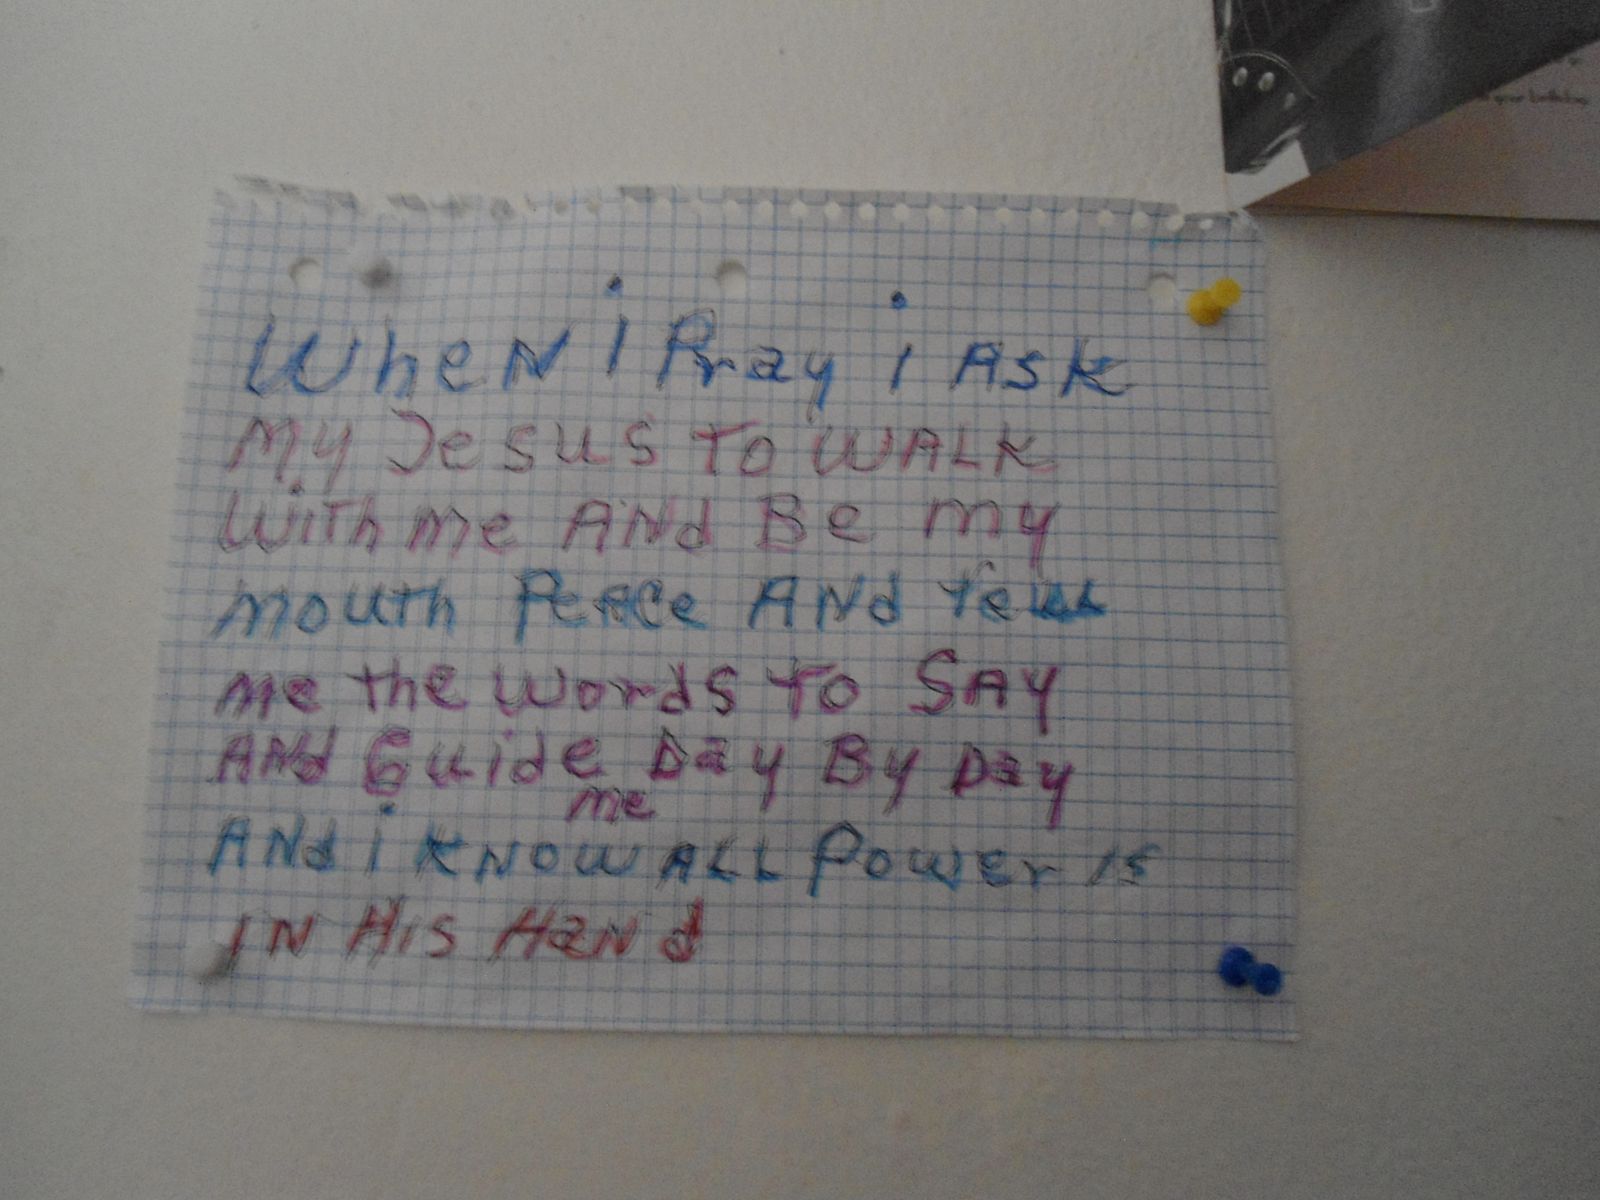 WheN i Pray i ASK
My JeSUS TO WALK
With me ANd Be my
mouth PeACe ANd Tell
me the words TO SAY
ANd Guide Day By Day
me
ANd i KNOW ALL POWEr is
iN His HaNd